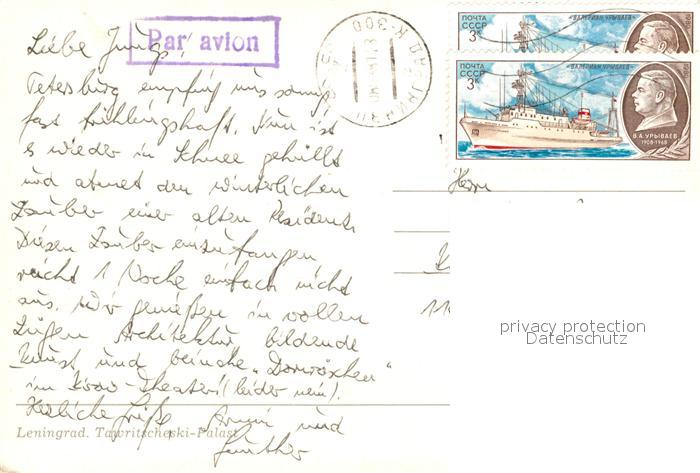 Par avion
Liebe Jungs,
Petersburg empfing uns sanft
fast frühlingshaft. Nun ist
es wieder in Schnee gehüllt
und atmet den winterlichen
Zauber einer alten Residenz.
Diesen Zauber einzufangen
reicht 1 Woche einfach nicht
aus. Wir genießen in vollen
Zügen Architektur, bildende
Kunst und beinahe „Dornröschen“
im Kirow-Theater! (leider nein).
Herzliche Grüße Armin und
Günther
Leningrad. Tawritscheski-Palast
ПОЧТА
СССР
3к
«ВАЛЕРИАН УРЫВАЕВ»
ПОЧТА
СССР
3к
«ВАЛЕРИАН УРЫВАЕВ»
В.А.УРЫВАЕВ
1908-1968
Herrn
11
privacy protection
Datenschutz